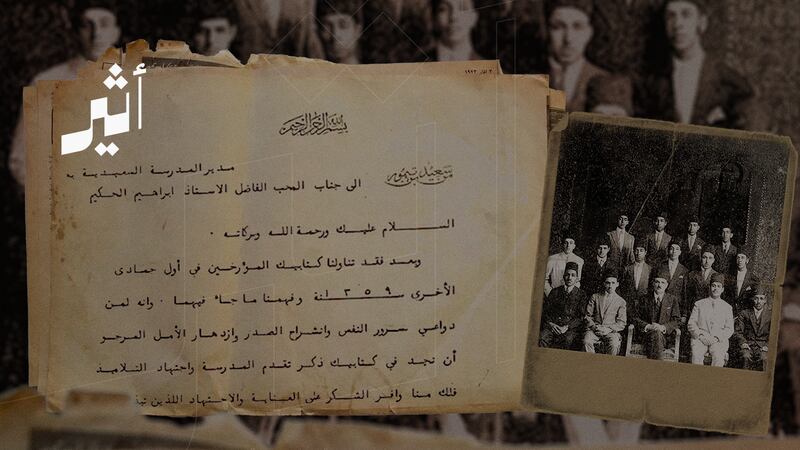 أثير
٢ آذار ١٩٢٣
بسم الله الرحمن الرحيم
من سعيد بن تيمور
مدير المدرسة السعيدية به
الى جناب المحب الفاضل الاستاذ ابراهيم الحكيم
الســلام عليك ورحمة الله وبركاته .
وبعد فقد تناولنا كتابيك المؤرخين في أول جمادى
الأخرى ســ١٣٥٩ــنة وفهمنا ما جاء فيهما . وانه لمن
دواعي سرور النفس وانشراح الصدر وازدهار الأمل المرجو
أن نجد في كتابيك ذكر تقدم المدرسة واجتهاد التلاميذ
فلك منا وافر الشكر على العناية والاجتهاد اللذين